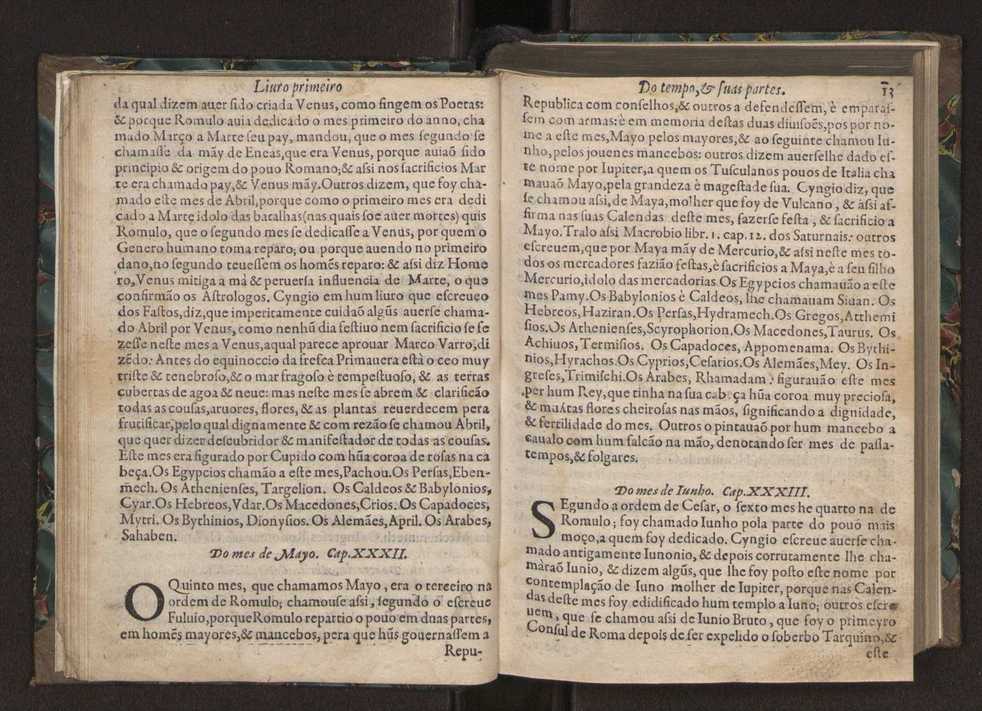 Liuro primeiro
da qual dizem auer sido criada Venus, como fingem os Poetas:
& porque Romulo auia dedicado o mes primeiro do anno, cha
mado Março a Marte seu pay, mandou, que o mes segundo se
chamasse da mãy de Eneas, que era Venus, porque auiaõ sido
principio & origem do pouo Romano; & assi nos sacrificios Mar
te era chamado pay, & Venus mãy. Outros dizem, que foy cha-
mado este mes de Abril, porque como o primeiro mes era dedi
cado a Marte idolo das batalhas (nas quais soe auer mortes) quis
Romulo, que o segundo mes se dedicasse a Venus, por quem o
Genero humano toma reparo; ou porque auendo no primeiro
dano, no segundo teuessem os homẽs reparo: & assi diz Home
ro, Venus mitiga a má & peruersa influencia de Marte, o que
confirmão os Astrologos. Cyngio em hum liuro que escreueo
dos Fastos, diz, que imperitamente cuidaõ algũs auerse chama-
do Abril por Venus, como nenhũ dia festiuo nem sacrificio se fe
zesse neste mes a Venus, aqual parece aprouar Marco Varro, di
zẽdo: Antes do equinoccio da fresca Primauera està o ceo muy
triste & tenebroso, & o mar fragoso è tempestuoso, & as terras
cubertas de agoa & neue: mas neste mes se abrem & clarificão
todas as cousas, aruores, flores, & as plantas reuerdecem pera
frutificar, pelo qual dignamente & com rezão se chamou Abril,
que quer dizer descubridor & manifestador de todas as cousas.
Este mes era figurado por Cupido com hũa coroa de rosas na ca
beça. Os Egypcios chamão a este mes, Pachou. Os Persas, Eben-
mech. Os Athenienses, Targelion. Os Caldeos & Babylonios,
Cyar. Os Hebreos, Vdar. Os Macedones, Crios. Os Capadoces,
Mytri. Os Bythinios, Dionysios. Os Alemães, April. Os Arabes,
Sahaben.
Do mes de Mayo. Cap. XXXII.
O Quinto mes, que chamamos Mayo, era o terceiro na
ordem de Romulo; chamouse assi, segundo o escreue
Fuluio, porque Romulo repartio o pouo em duas partes,
em homẽs mayores, & mancebos, pera que hũs gouernassem a
Repu-
Do tempo, & suas partes. 13
Republica com conselhos, & outros a defendessem, è emparas-
sem com armas: è em memoria destas duas diuisoẽs, pos por no-
me a este mes, Mayo pelos mayores, & ao seguinte chamou Iu-
nho, pelos jouenes mancebos: outros dizem auerselhe dado es-
te nome por Iupiter, a quem os Tusculanos pouos de Italia cha
mauaõ Mayo, pela grandeza è magestade sua. Cyngio diz, que
se chamou assi, de Maya, molher que foy de Vulcano, & assi af-
firma nas suas Calendas deste mes, fazerse festa, & sacrificio a
Mayo. Tralo assi Macrobio libr. 1. cap. 12. dos Saturnais: outros
escreuem, que por Maya mãy de Mercurio, & assi neste mes to-
dos os mercadores fazião festas, è sacrificios a Maya, è a seu filho
Mercurio, idolo das mercadorias. Os Egypcios chamauão a este
mes Pamy. Os Babylonios è Caldeos, lhe chamauam Siuan. Os
Hebreos, Haziran. Os Persas, Hydramech. Os Gregos, Atthemi
sios. Os Athenienses, Scyrophorion, Os Macedones, Taurus. Os
Achiuos, Termisios. Os Capadoces, Appomenama. Os Bythi-
nios, Hyrachos. Os Cyprios, Cesarios. Os Alemães, Mey. Os In-
greses, Trimischi. Os Arabes, Rhamadam: figurauão este mes
per hum Rey, que tinha na sua cabeça hũa coroa muy preciosa,
& muitas flores cheirosas nas mãos, significando a dignidade,
& fertilidade do mes. Outros o pintauaõ por hum mancebo a
caualo com hum falcão na mão, denotando ser mes de passa-
tempos, & folgares.
Do mes de Iunho. Cap. XXXIII.
SEgundo a ordem de Cesar, o sexto mes he quarto na de
Romulo; foy chamado Iunho pola parte do pouo mais
moço, a quem foy dedicado. Cyngio escreue auerse cha-
mado antigamente Iunonio, & depois corrutamente lhe cha-
maraõ Iunio, & dizem algũs, que lhe foy posto este nome por
contemplação de Iuno molher de Iupiter, porque nas Calen-
das deste mes foy edidificado hum templo a Iuno; outros escre
uem, que se chamou assi de Iunio Bruto, que foy o primeyro
Consul de Roma depois de ser expelido o soberbo Tarquino, &
este